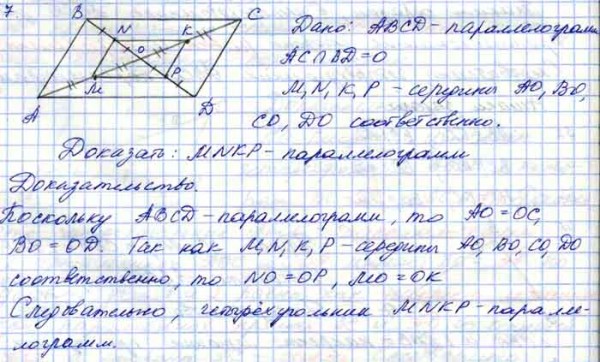 7.
B C
N K
O
M P
A D
Дано: ABCD - параллелограмм
AC∩BD=O
M, N, K, P - середины AO, BO,
CO, DO соответственно.
Доказать: MNKP - параллелограмм
Доказательство.
Поскольку ABCD - параллелограмм, то AO=OC,
BO=OD. Так как M, N, K, P - середины AO, BO, CO, DO
соответственно, то NO=OP, MO=OK
Следовательно, четырёхугольник MNKP - паралле-
лограмм.